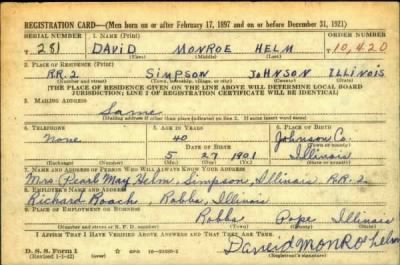 REGISTRATION CARD—(Men born on or after February 17, 1897 and on or before December 31, 1921)
SERIAL NUMBER 1. NAME (Print) ORDER NUMBER
T 281 DAVID MONROE HELM T 10,420
(First) (Middle) (Last)
2. PLACE OF RESIDENCE (Print)
RR.2 SIMPSON JOHNSON ILLINOIS
(Number and street) (Town, township, village, or city) (County) (State)
[THE PLACE OF RESIDENCE GIVEN ON THE LINE ABOVE WILL DETERMINE LOCAL BOARD
JURISDICTION; LINE 2 OF REGISTRATION CERTIFICATE WILL BE IDENTICAL]
3. MAILING ADDRESS
Same
[Mailing address if other than place indicated on line 2. If same insert word same]
4. TELEPHONE 5. AGE IN YEARS 6. PLACE OF BIRTH
None 40 Johnson Co.
DATE OF BIRTH (Town or county)
5 27 1901 Illinois
(Exchange) (Number) (Mo.) (Day) (Yr.) (State or country)
7. NAME AND ADDRESS OF PERSON WHO WILL ALWAYS KNOW YOUR ADDRESS
Mrs Pearl May Helm, Simpson, Illinois R.R. 2
8. EMPLOYER'S NAME AND ADDRESS
Richard Roach, Robbs, Illinois
9. PLACE OF EMPLOYMENT OR BUSINESS
Robbs Pope Illinois
(Number and street or R. F. D. number) (Town) (County) (State)
I AFFIRM THAT I HAVE VERIFIED ABOVE ANSWERS AND THAT THEY ARE TRUE.
D. S. S. Form 1
(Revised 1-1-42) (over)